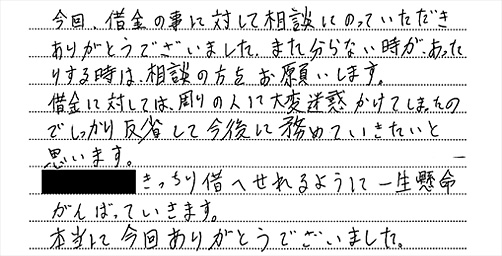 今回、借金の事に対して相談にのっていただき
ありがとうございました。また分らない時が、あった
りする時は、相談の方をお願いします。
借金に対しては、周りの人に大変迷惑かけてしまったの
でしっかり反省して今後に務めていきたいと
思います。
きっちり借へせれるように一生懸命
がんばっていきます。
本当に今回ありがとうございました。